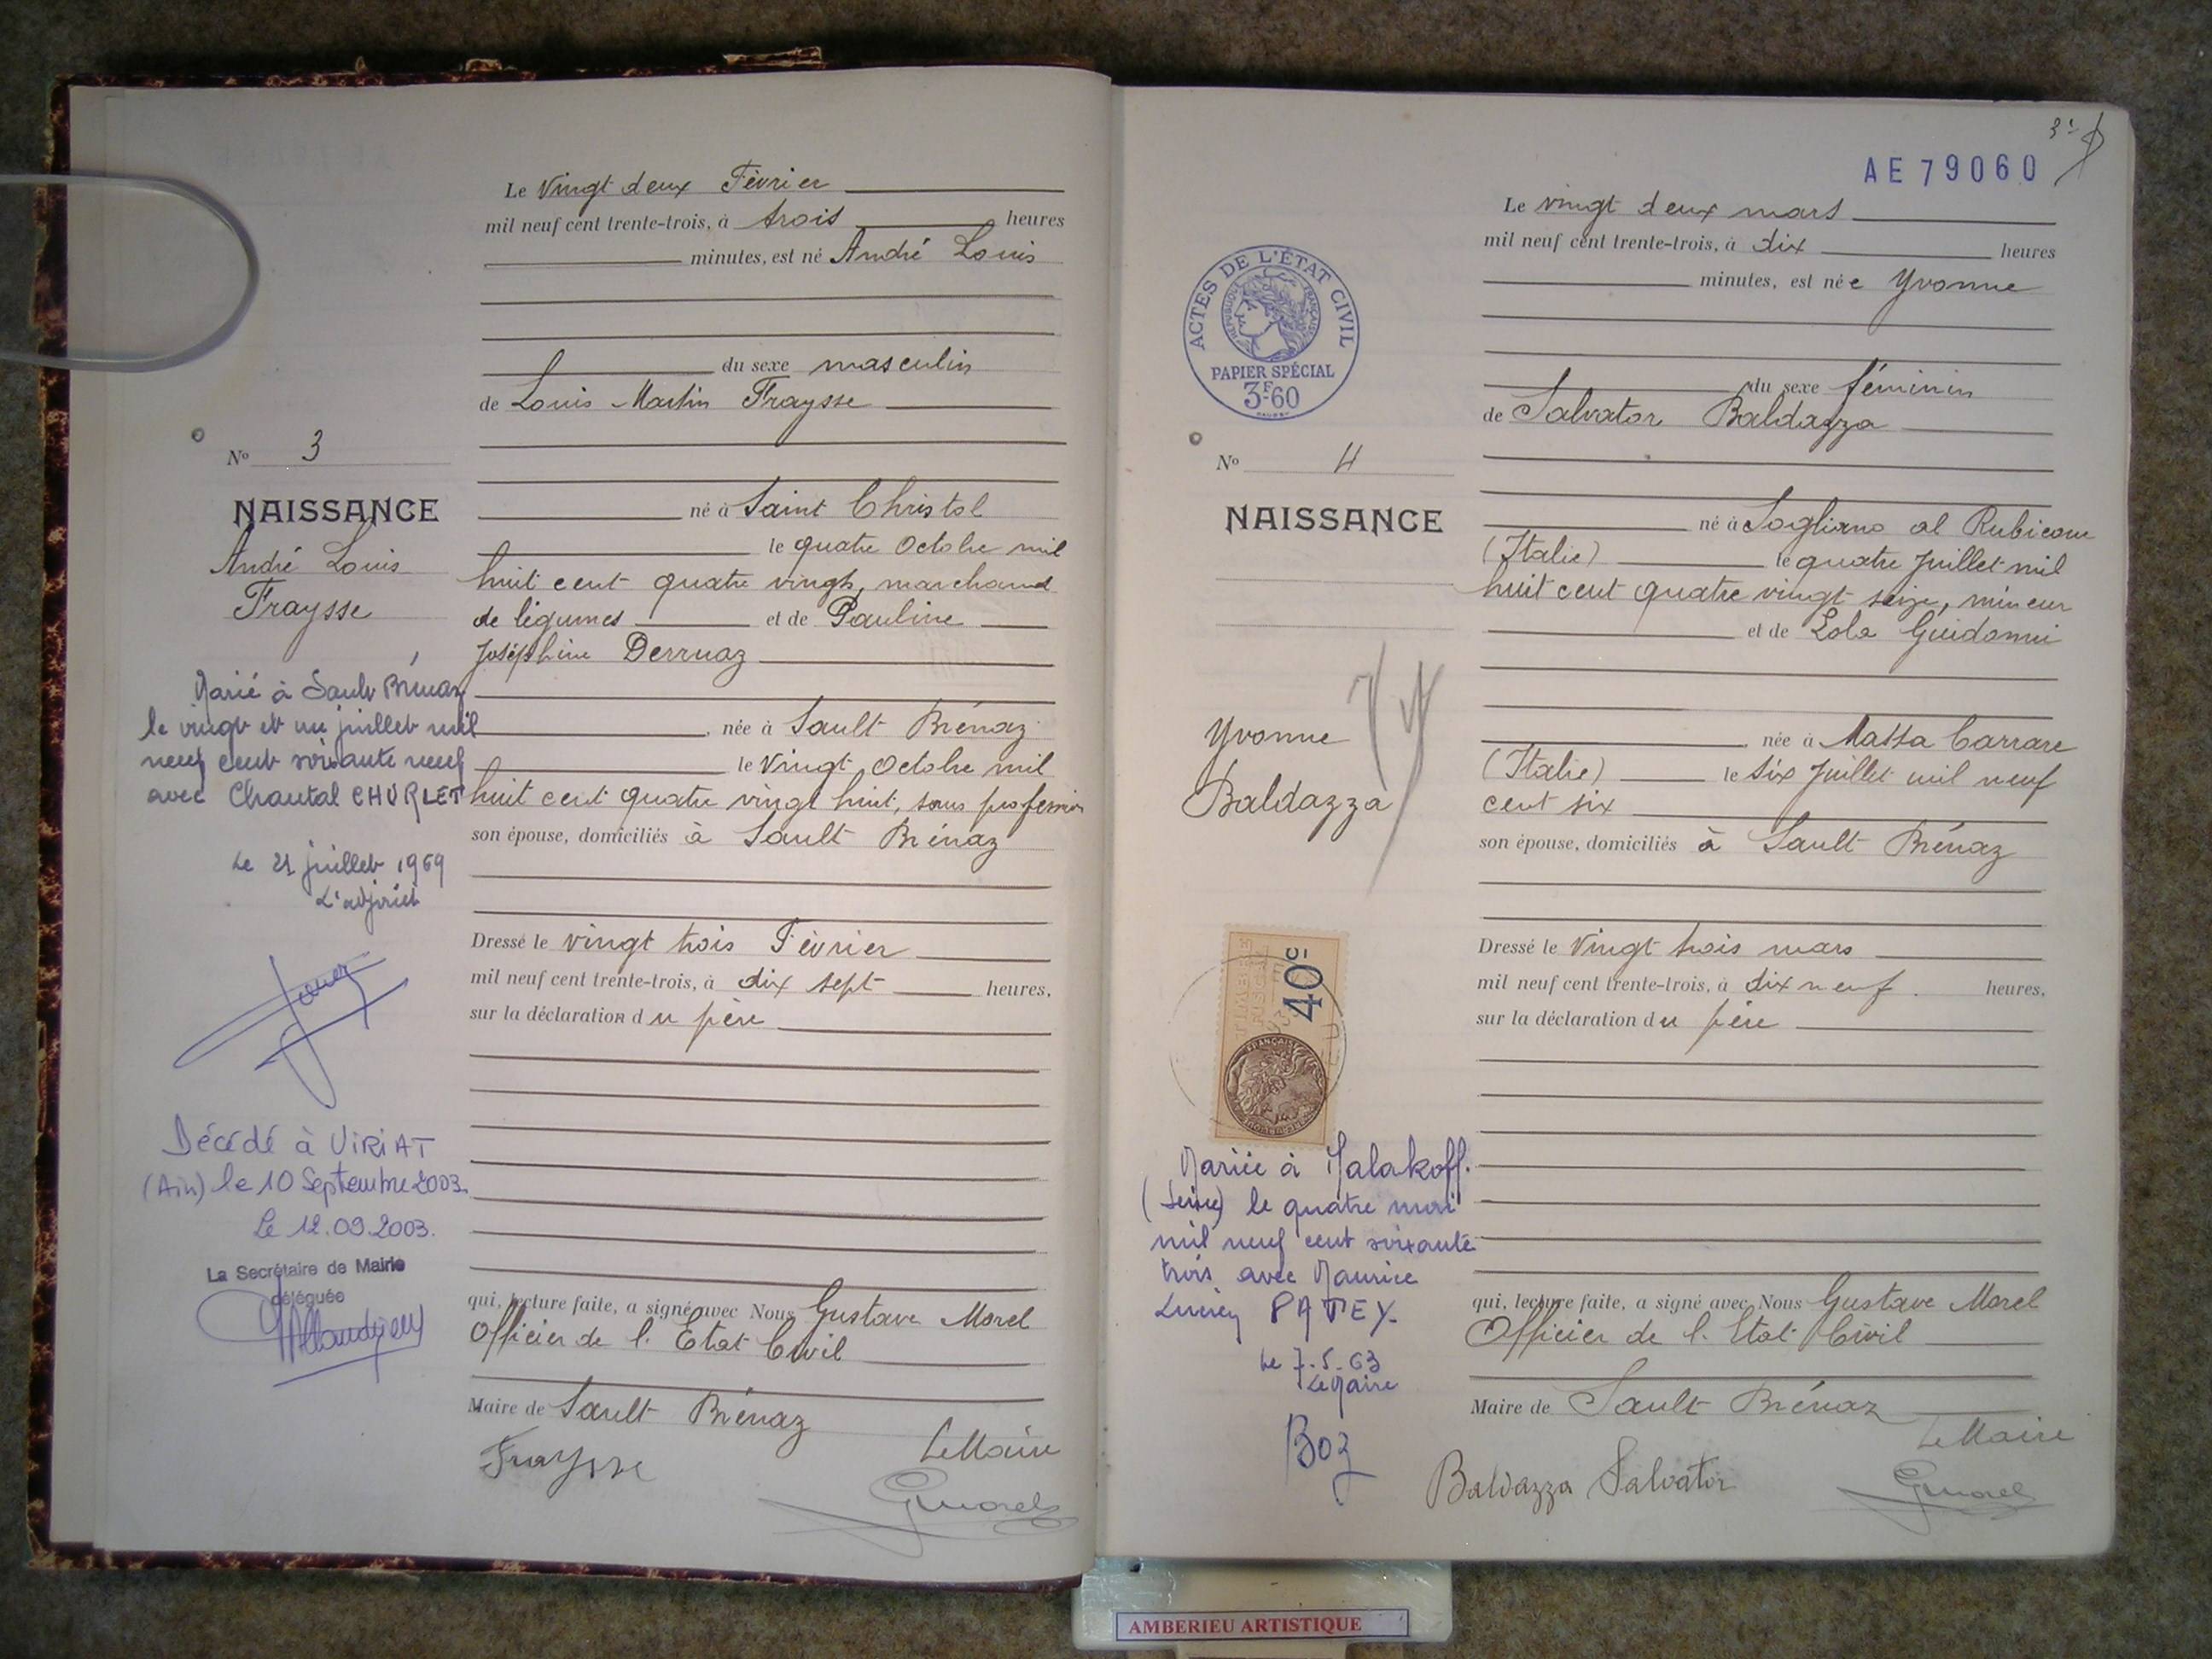 Le Vingt deux Février
mil neuf cent trente-trois, à trois heures
minutes, est né André Louis
du sexe masculin
de Louis Martin Fraysse
né à Saint Christol
le quatre Octobre mil
huit cent quatre vingts, marchand
de légumes et de Pauline
Joséphine Derruaz
née à Sault Brénaz
le Vingt Octobre mil
huit cent quatre vingt huit, sans profession
son épouse, domiciliés à Sault Brénaz
Dressé le vingt trois Février
mil neuf cent trente-trois, à dix sept heures,
sur la déclaration du père
qui, lecture faite, a signé avec Nous Gustave Morel
Officier de l'Etat Civil
Maire de Sault Brénaz
Fraysse
Le Maire
GMorel
No 3
NAISSANCE
André Louis
Fraysse
Marié à Sault Brénaz
le vingt et un juillet mil
neuf cent soixante neuf
avec Chantal CHURLET
Le 21 juillet 1969
L'adjoint
Décédé à VIRIAT
(Ain) le 10 Septembre 2003.
Le 12.09.2003.
La Secrétaire de Mairie
déléguée
AE 79060
Le vingt deux mars
mil neuf cent trente-trois, à dix heures
minutes, est née Yvonne
du sexe féminin
de Salvator Baldazza
né à Sogliano al Rubicone
(Italie) le quatre Juillet mil
huit cent quatre vingt seize, mineur
et de Lola Guidonni
née à Massa Carrare
(Italie) le six Juillet mil neuf
cent six
son épouse, domiciliés à Sault Brénaz
Dressé le Vingt trois mars
mil neuf cent trente-trois, à dix neuf heures,
sur la déclaration du père
qui, lecture faite, a signé avec Nous Gustave Morel
Officier de l'Etat Civil
Maire de Sault Brénaz
Le Maire
Baldazza Salvator
GMorel
ACTES DE L'ÉTAT CIVIL
RÉPUBLIQUE FRANÇAISE
PAPIER SPÉCIAL
3F.60
No 4
NAISSANCE
Yvonne
Baldazza
TIMBRE FISCAL
40c
Mariée à Malakoff.
(Seine) le quatre mai
mil neuf cent soixante
trois avec Maurice
Lucien PATEY.
Le 7.5.63
Le Maire
Boz
AMBERIEU ARTISTIQUE